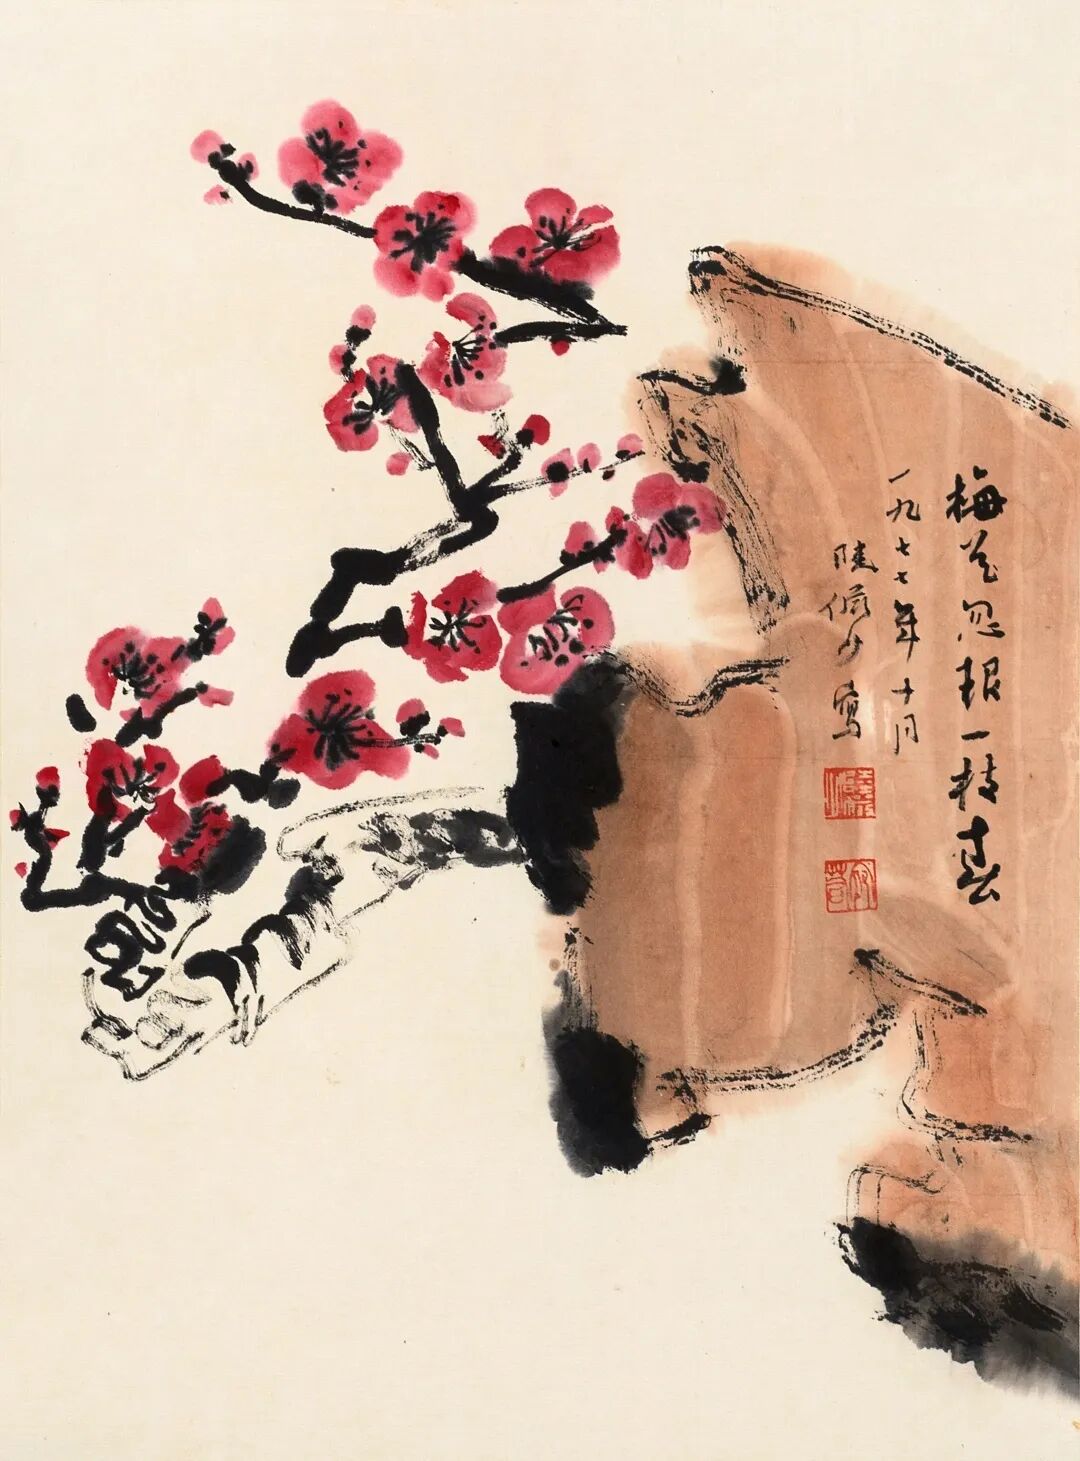 梅花忽报一枝春
一九七七年十月
陸儼少寫